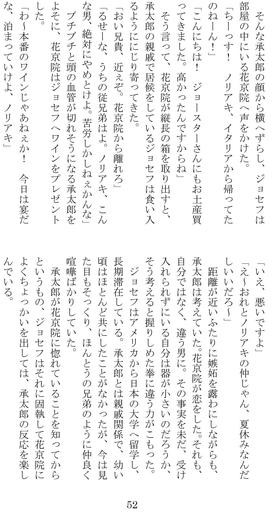 そんな承太郎の顔から横へずらし、ジョセフは
部屋の中にいる花京院へ声をかけた。
「ちーっす！　ノリアキ、イタリアから帰ってた
のねーん！」
「こんにちは！　ジョースターさんにもお土産買
ってきました。高かったんですからね」
そう言って、花京院が縦長の箱を取り出すと、
承太郎の親戚で居候をしているジョセフは食い入
るようににじり寄ってきた。
「おい兄貴、近えぞ。花京院から離れろ」
「るせーな、うちの従兄弟はよ。ノリアキ、こん
な男、絶対にやめとけよ。苦労しかしねぇかんな」
プチプチと頭の血管が切れそうになる承太郎を
よそに、花京院はジョセフへワインをプレゼント
した。
「わー本番のワインじゃあねぇか！　今日は宴だ
な、泊まっていけよ、ノリアキ」
「いえ、悪いですよ」
「え～おれとノリアキの仲じゃん、夏休みなんだ
しいいだろ～」
距離が近いふたりに嫉妬を露わにしながらも、
承太郎は考えていた。花京院が恋をした。それも、
自分ではなく、違う男に。その事実を未だ、受け
入れられずにいる自分は器が小さいのだろうか、
そう考えると握りしめた拳に違う力がこもった。
ジョセフはアメリカから日本の大学へ留学し、
長期滞在している。承太郎とは親戚関係で、幼い
頃はほとんど共にしたことがなかったが、今は見
た目もそっくり、ほんとうの兄弟のように仲良く
喧嘩ばかりしていた。
承太郎が花京院に惚れていることを知ってから
というもの、ジョセフはそれに固執して花京院に
よくちょっかいを出しては、承太郎の反応を楽し
んでいる。
52